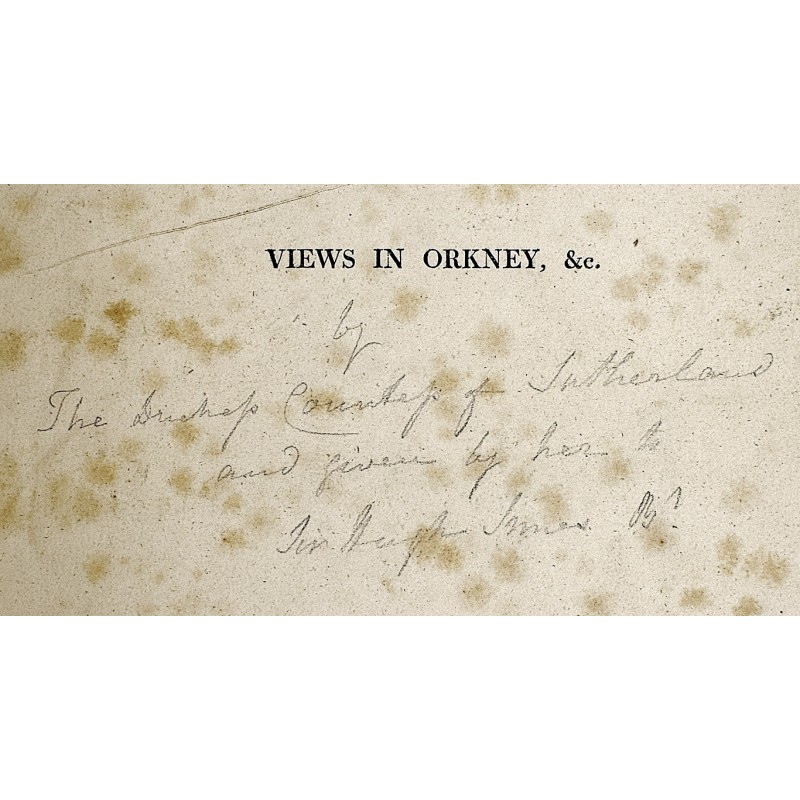 VIEWS IN ORKNEY, &c.
by
The Duchess Countess of Sutherland
and given by her to
Sir Hugh Innes Bt